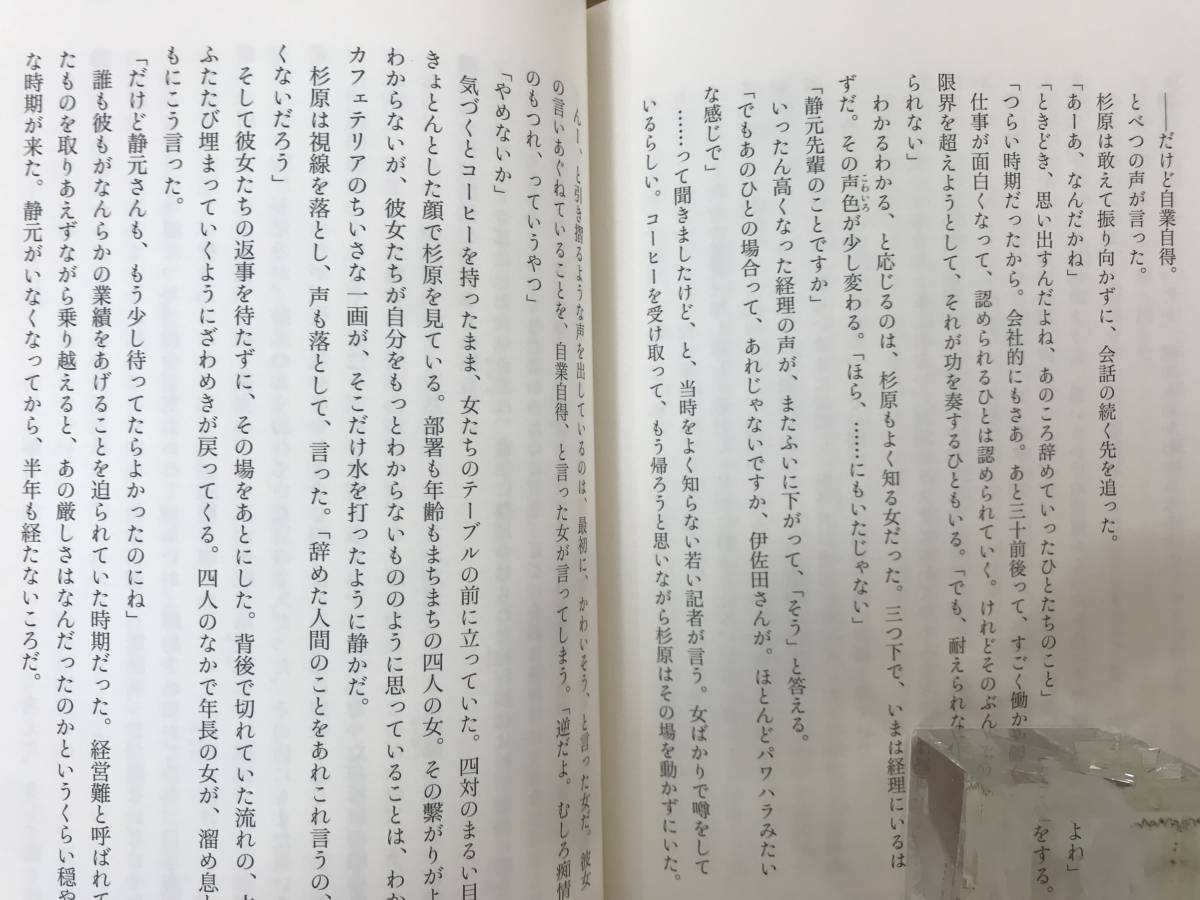 ――だけど自業自得。
とべつの声が言った。
杉原は敢えて振り向かずに、会話の続く先を追った。
「あーあ、なんだかね」
よね」
「ときどき、思い出すんだよね、あのころ辞めていったひとたちのこと」
をする。
「つらい時期だったから。会社的にもさあ。あと三十前後って、すごく働か
仕事が面白くなって、認められるひとは認められていく。けれどそのぶん
限界を超えようとして、それが功を奏するひともいる。「でも、耐えられな
られない」
わかるわかる、と応じるのは、杉原もよく知る女だった。三つ下で、いまは経理にいるは
ずだ。その声色が少し変わる。「ほら、……にもいたじゃない」
こわいろ
「静元先輩のことですか」
いったん高くなった経理の声が、またふいに下がって、「そう」と答える。
「でもあのひとの場合って、あれじゃないですか、伊佐田さんが。ほとんどパワハラみたい
な感じで」
……って聞きましたけど、と、当時をよく知らない若い記者が言う。女ばかりで噂をして
いるらしい。コーヒーを受け取って、もう帰ろうと思いながら杉原はその場を動かずにいた。
んー、と引き摺るような声を出しているのは、最初に、かわいそう、と言った女だ。彼女
の言いあぐねていることを、自業自得、と言った女が言ってしまう。「逆だよ。むしろ痴情
のもつれ、っていうやつ」
「やめないか」
気づくとコーヒーを持ったまま、女たちのテーブルの前に立っていた。四対のまるい目
きょとんとした顔で杉原を見ている。部署も年齢もまちまちの四人の女。その繋がりがよ
わからないが、彼女たちが自分をもっとわからないもののように思っていることは、わか
カフェテリアのちいさな一画が、そこだけ水を打ったように静かだ。
杉原は視線を落とし、声も落として、言った。「辞めた人間のことをあれこれ言うの、
くないだろう」
そして彼女たちの返事を待たずに、その場をあとにした。背後で切れていた流れの、
ふたたび埋まっていくようにざわめきが戻ってくる。四人のなかで年長の女が、溜め息
もにこう言った。
「だけど静元さんも、もう少し待ってたらよかったのにね」
誰も彼もがなんらかの業績をあげることを迫られていた時期だった。経営難と呼ばれて
たものを取りあえずながら乗り越えると、あの厳しさはなんだったのかというくらい穏や
な時期が来た。静元がいなくなってから、半年も経たないころだ。